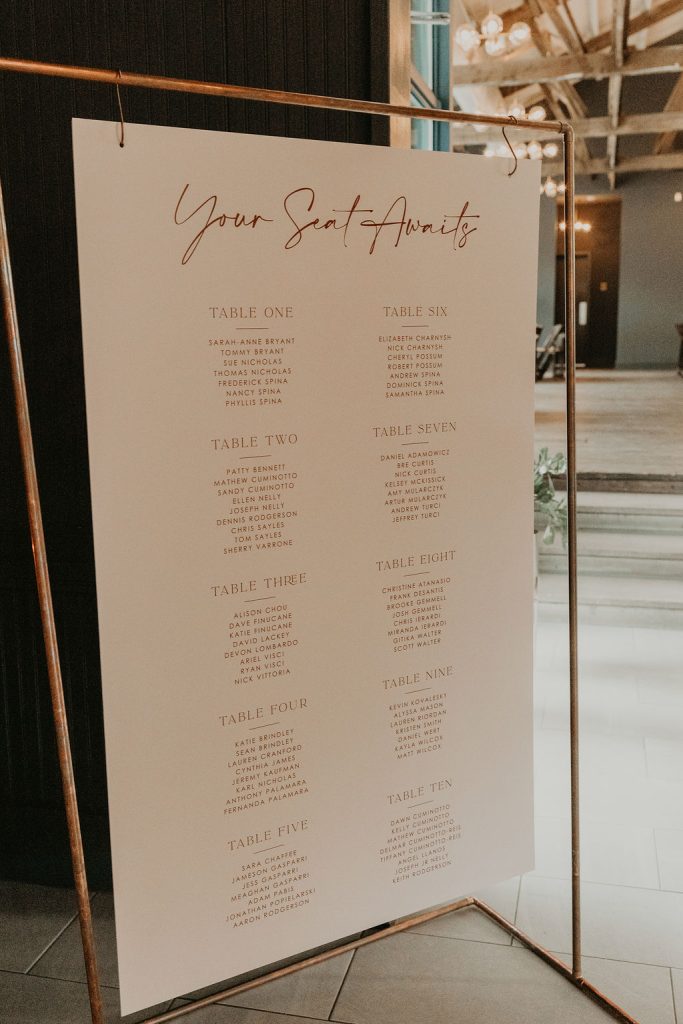 Your Seat Awaits
TABLE ONE
SARAH-ANNE BRYANT
TOMMY BRYANT
SUE NICHOLAS
THOMAS NICHOLAS
FREDERICK SPINA
NANCY SPINA
PHYLLIS SPINA
TABLE TWO
PATTY BENNETT
MATHEW CUMINOTTO
SANDY CUMINOTTO
ELLEN NELLY
JOSEPH NELLY
DENNIS RODGERSON
CHRIS SAYLES
TOM SAYLES
SHERRY VARRONE
TABLE THREE
ALISON CHOU
DAVE FINUCANE
KATIE FINUCANE
DAVID LACKEY
DEVON LOMBARDO
ARIEL VISCI
RYAN VISCI
NICK VITTORIA
TABLE FOUR
KATIE BRINDLEY
SEAN BRINDLEY
LAUREN CRANFORD
CYNTHIA JAMES
JEREMY KAUFMAN
KARL NICHOLAS
ANTHONY PALAMARA
FERNANDA PALAMARA
TABLE FIVE
SARA CHAFFEE
JAMESON GASPARRI
JESS GASPARRI
MEAGHAN GASPARRI
ADAM PABIS
JONATHAN POPIELARSKI
AARON RODGERSON
TABLE SIX
ELIZABETH CHARNYSH
NICK CHARNYSH
CHERYL POSSUM
ROBERT POSSUM
ANDREW SPINA
DOMINICK SPINA
SAMANTHA SPINA
TABLE SEVEN
DANIEL ADAMOWICZ
BRE CURTIS
NICK CURTIS
KELSEY MCKISSICK
AMY MULARCZYK
ARTUR MULARCZYK
ANDREW TURCI
JEFFREY TURCI
TABLE EIGHT
CHRISTINE ATANASIO
FRANK DESANTIS
BROOKE GEMMELL
JOSH GEMMELL
CHRIS IERARDI
MIRANDA IERARDI
GITIKA WALTER
SCOTT WALTER
TABLE NINE
KEVIN KOVALESKY
ALYSSA MASON
LAUREN RIORDAN
KRISTEN SMITH
DANIEL WERT
KAYLA WILCOX
MATT WILCOX
TABLE TEN
DAWN CUMINOTTO
KELLY CUMINOTTO
MATHEW CUMINOTTO
DELMAR CUMINOTTO-REIS
TIFFANY CUMINOTTO-REIS
ANGEL LLANOS
JOSEPH JR NELLY
KEITH RODGERSON